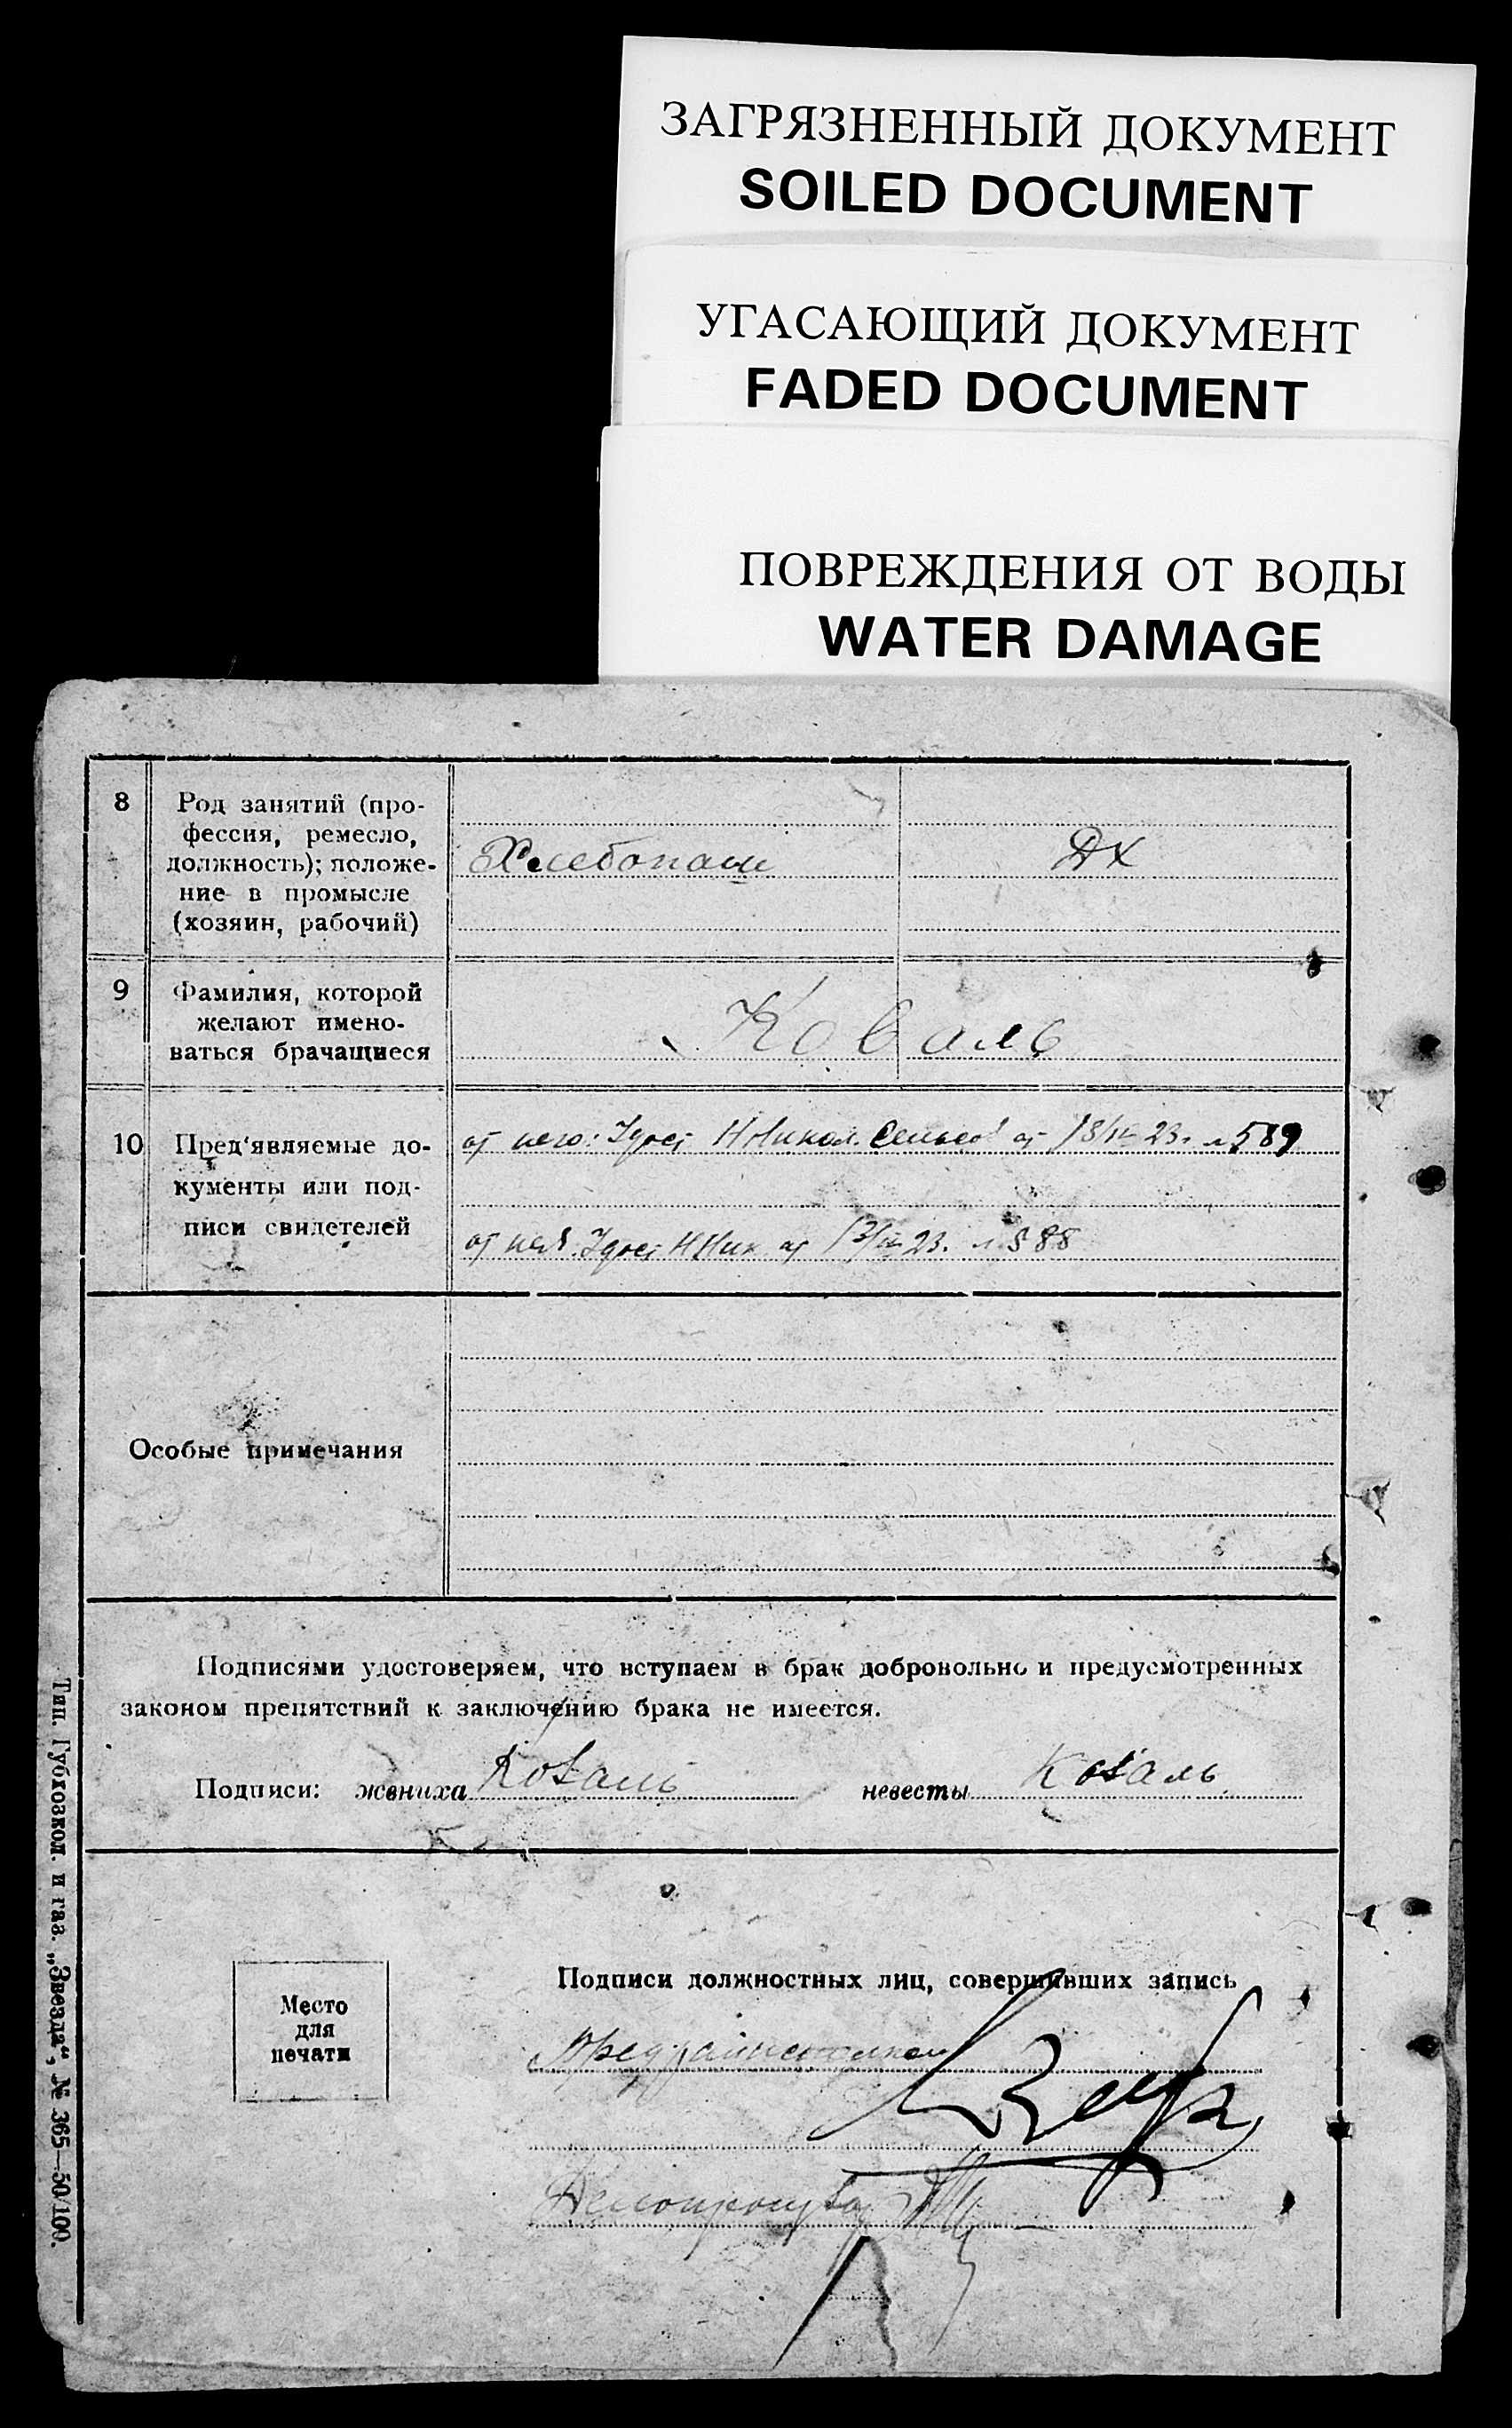 ЗАГРЯЗНЕННЫЙ ДОКУМЕНТ
SOILED DOCUMENT
УГАСАЮЩИЙ ДОКУМЕНТ
FADED DOCUMENT
ПОВРЕЖДЕНИЯ ОТ ВОДЫ
WATER DAMAGE
8
Род занятий (про-
фессия, ремесло,
должность); положе-
ние в промысле
(хозяин, рабочий)
Хлебопаш
ДХ
9
Фамилия, которой
желают имено-
ваться брачащиеся
Коваль
10
Пред'являемые до-
кументы или под-
писи свидетелей
от него: Удост 23 589
от нея Удост 23. 588
Особые примечания
Подписями удостоверяем, что вступаем в брак добровольно и предусмотренных
законом препятствий к заключению брака не имеется.
Подписи: жениха Коваль невесты Коваль
Место
для
печати
Подписи должностных лиц, совершивших запись
Делопроизвод
Тип. Губхозкол. и газ. „Звезда“, № 365—50/100.